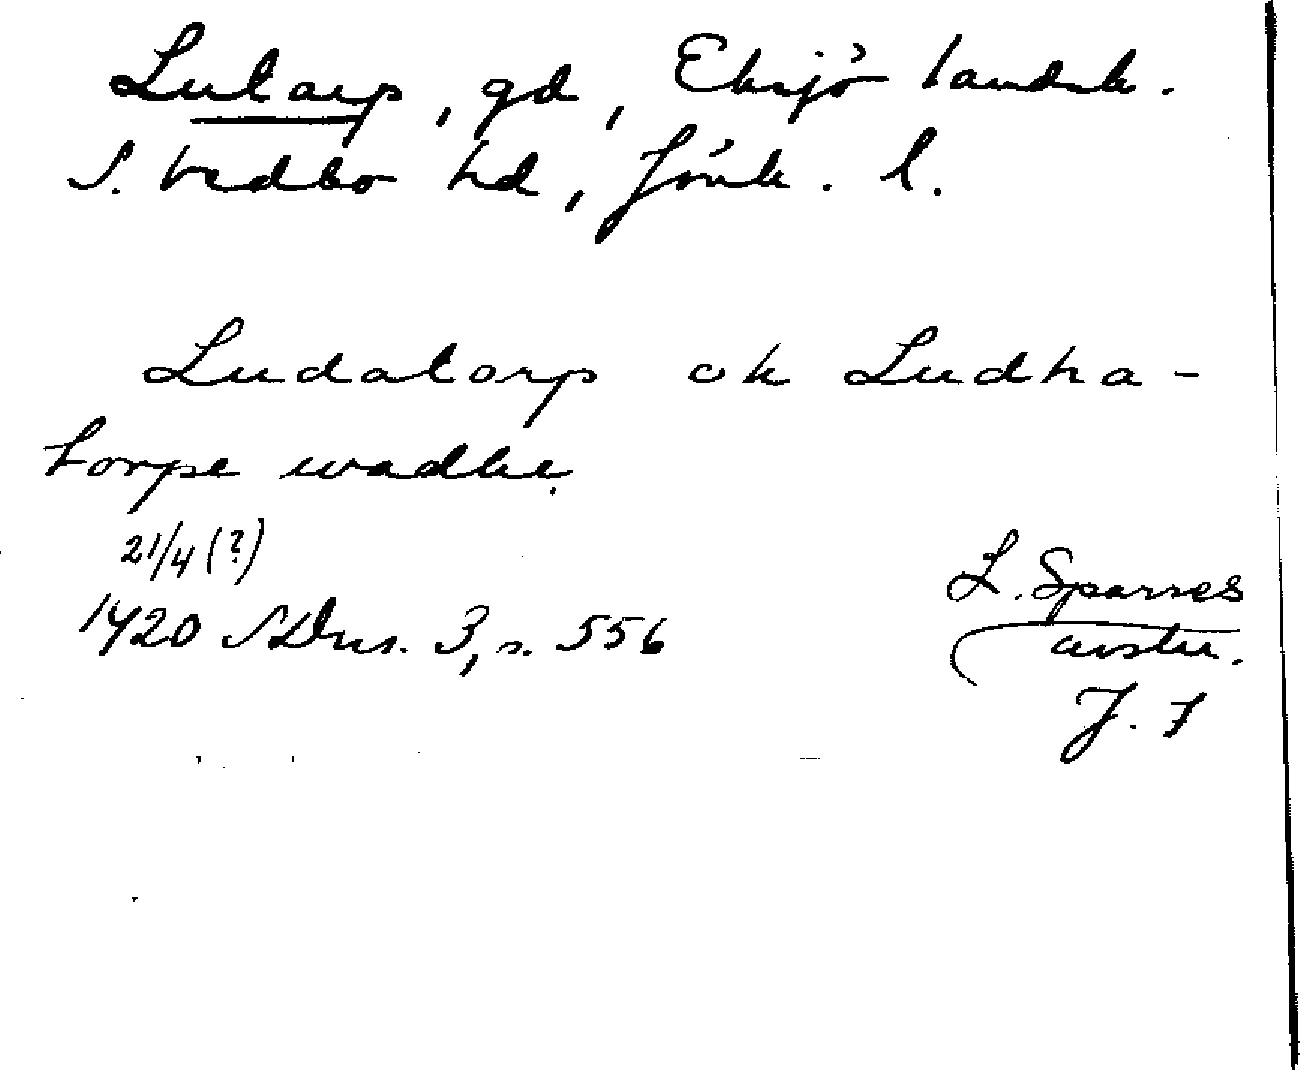 Lutarp, gd, Eksjö landsk.
S. Vedbo hd, Jönk. l.
Ludatorp ok Ludha-
torpe wadhe.
21/4 (?)
1420 SDns. 3, s. 556
L. Sparres
avskr.
J. F